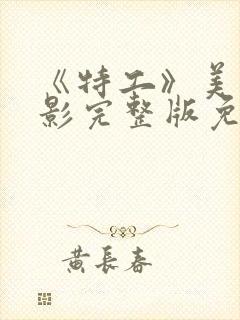 《特工》美
影完整版免
黄长春